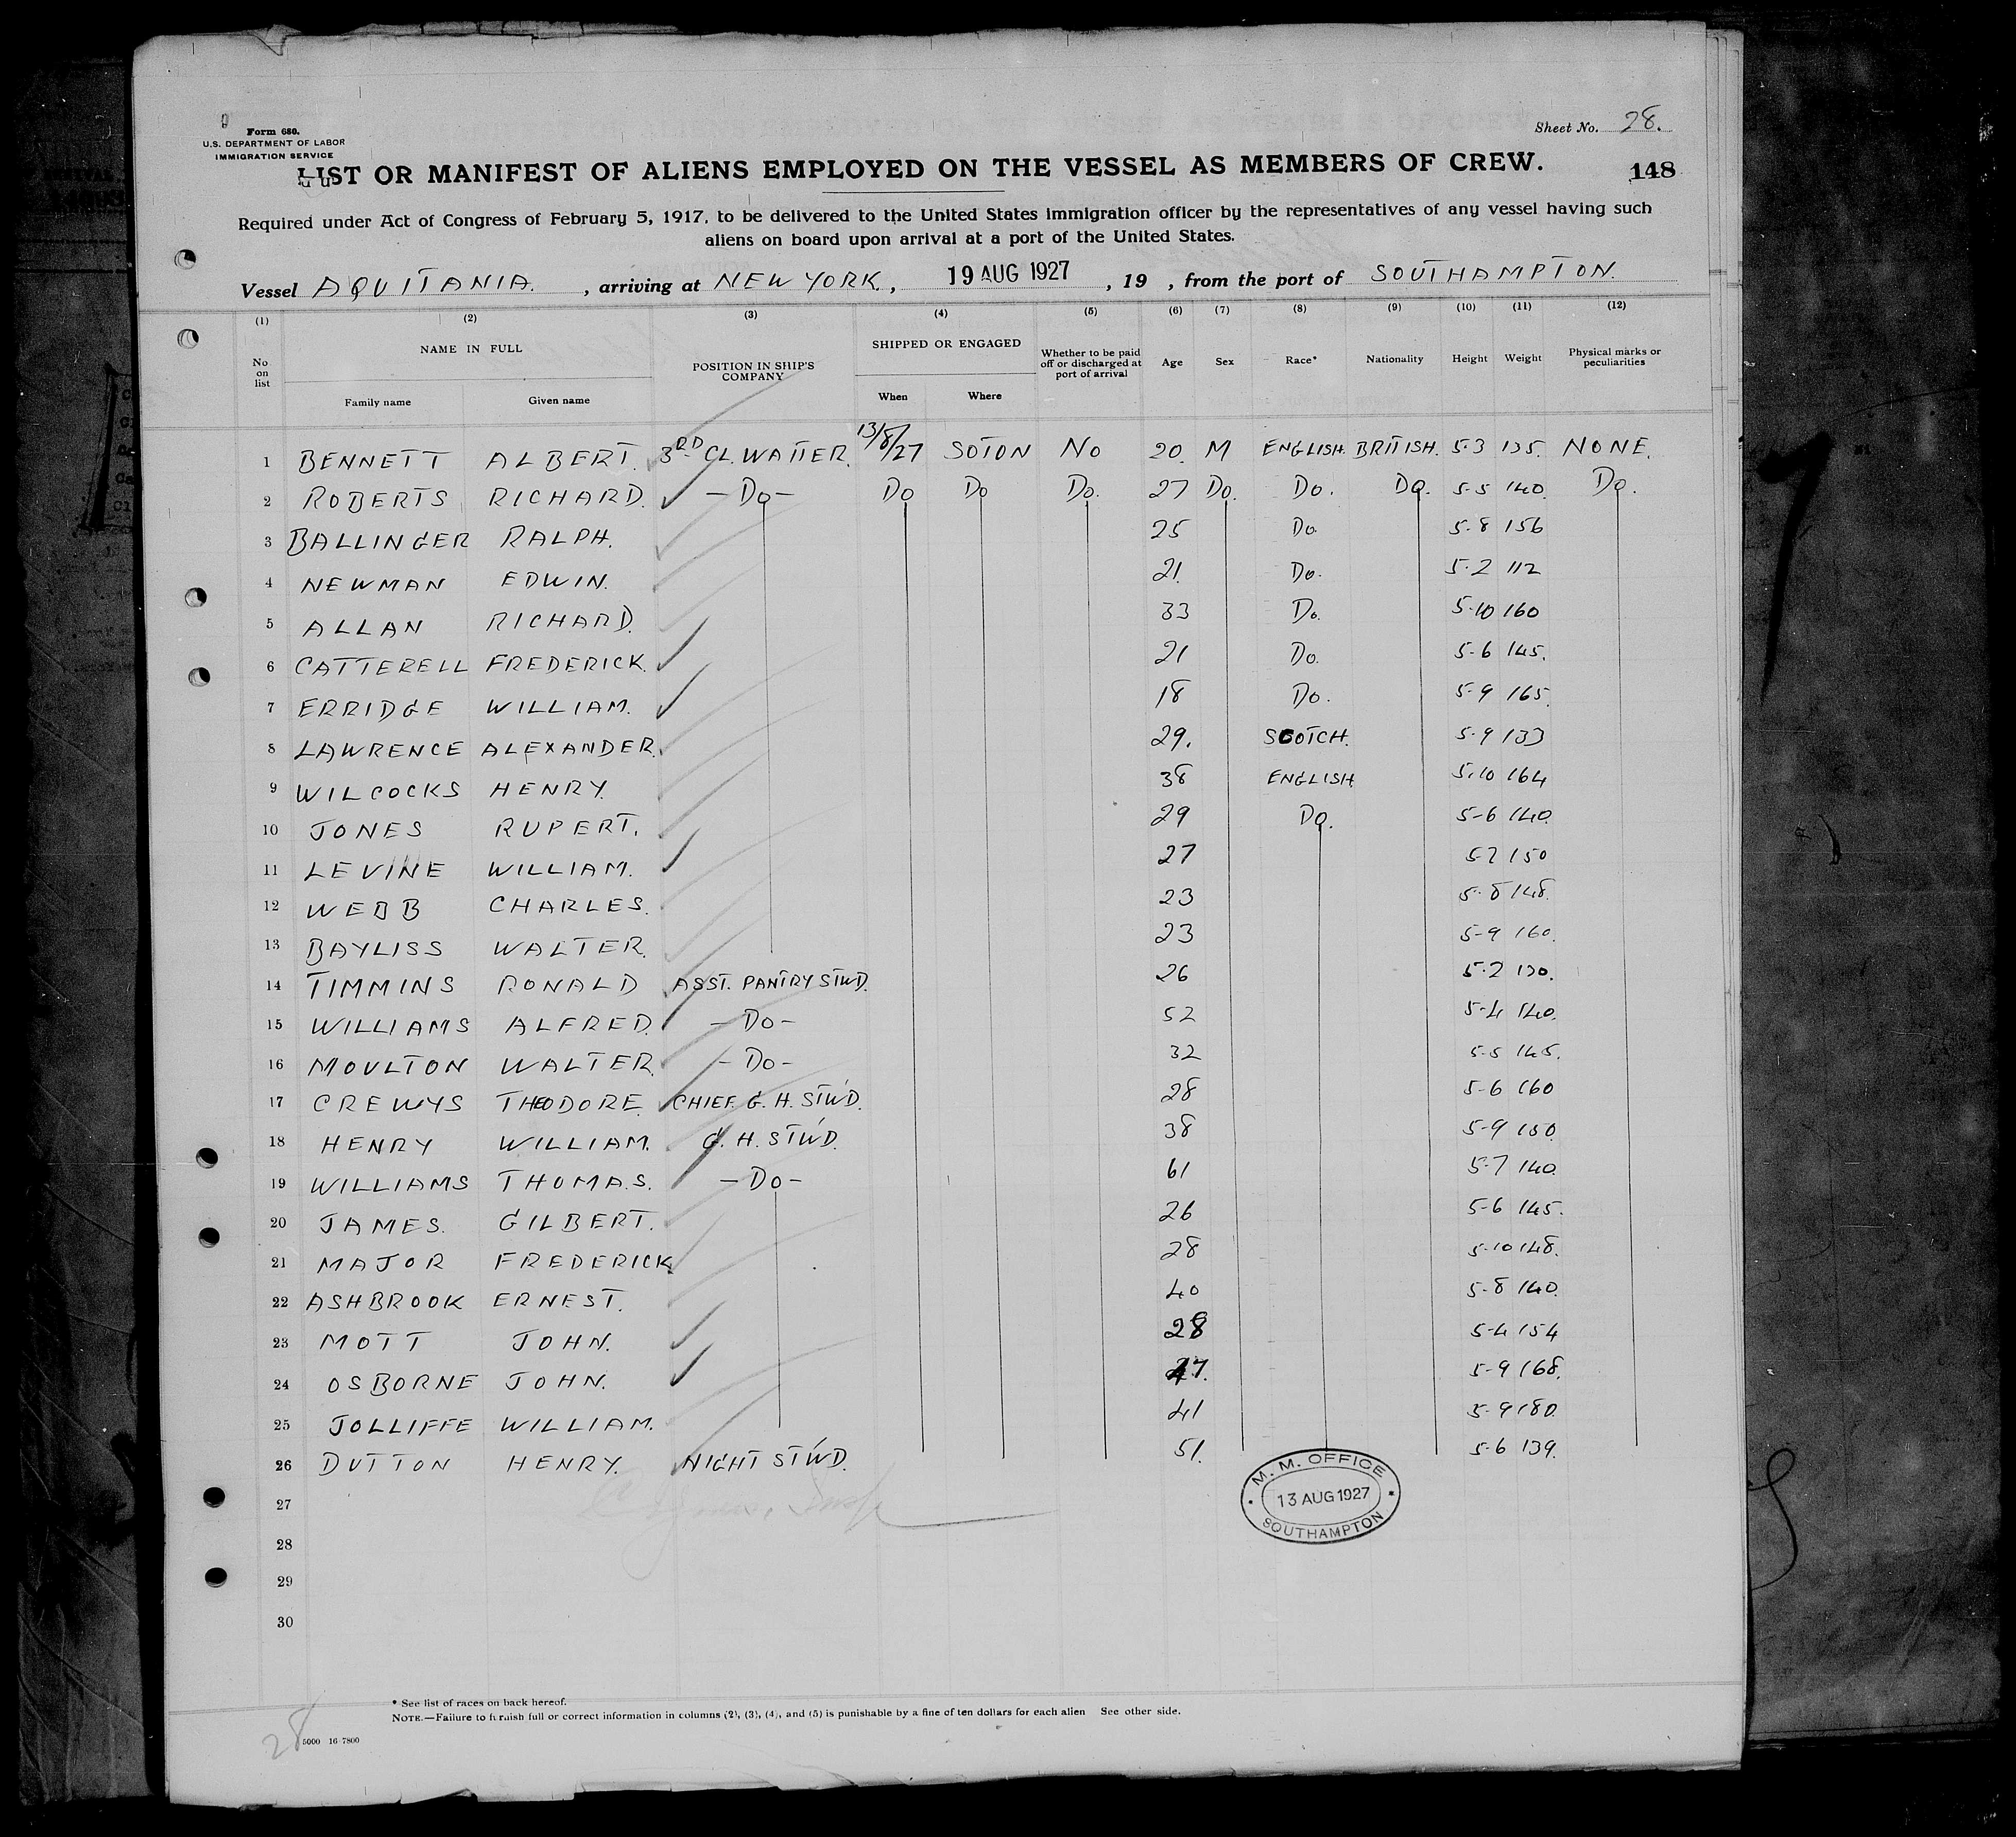 Form 680.
U.S. DEPARTMENT OF LABOR
IMMIGRATION SERVICE
Sheet No. 28.
LIST OR MANIFEST OF ALIENS EMPLOYED ON THE VESSEL AS MEMBERS OF CREW.
148
Required under Act of Congress of February 5, 1917, to be delivered to the United States immigration officer by the representatives of any vessel having such
aliens on board upon arrival at a port of the United States.
Vessel AQUITANIA. , arriving at NEW YORK. , 19 AUG 1927 , 19 , from the port of SOUTHAMPTON.
(1) (2) (3) (4) (5) (6) (7) (8) (9) (10) (11) (12)
No on list NAME IN FULL Family name Given name POSITION IN SHIP'S COMPANY SHIPPED OR ENGAGED When Where Whether to be paid off or discharged at port of arrival Age Sex Race* Nationality Height Weight Physical marks or peculiarities
1 BENNETT ALBERT. 3RD CL. WAITER. 13/8/27 SOTON NO 20. M ENGLISH. BRITISH. 5-3 135. NONE.
2 ROBERTS RICHARD. -DO- DO DO DO. 27 DO. DO. DO. 5-5 140. DO.
3 BALLINGER RALPH. 25 DO. 5-8 156
4 NEWMAN EDWIN. 21. DO. 5-2 112
5 ALLAN RICHARD. 33 DO. 5-10 160
6 CATTERELL FREDERICK. 21 DO. 5-6 145.
7 ERRIDGE WILLIAM. 18 DO. 5-9 165.
8 LAWRENCE ALEXANDER. 29. SCOTCH. 5-9 133
9 WILCOCKS HENRY. 38 ENGLISH 5-10 164
10 JONES RUPERT. 29 DO. 5-6 140.
11 LEVINE WILLIAM. 27 5-7 150
12 WEBB CHARLES. 23 5-8 148.
13 BAYLISS WALTER. 23 5-9 160.
14 TIMMINS RONALD ASST. PANTRY STWD. 26 5-2 130.
15 WILLIAMS ALFRED. -DO- 52 5-4 140.
16 MOULTON WALTER. -DO- 32 5-5 145.
17 CREWYS THEODORE. CHIEF. G. H. STWD. 28 5-6 160
18 HENRY WILLIAM. G. H. STWD. 38 5-9 150.
19 WILLIAMS THOMAS. -DO- 61 5-7 140.
20 JAMES. GILBERT. 26 5-6 145.
21 MAJOR FREDERICK 28 5-10 148.
22 ASHBROOK ERNEST. 40 5-8 140.
23 MOTT JOHN. 28 5-4 154
24 OSBORNE JOHN. 5-9 168.
25 JOLLIFFE WILLIAM. 41 5-9 180.
26 DUTTON HENRY. NIGHT STWD. 51. 5-6 139.
M. M. OFFICE
13 AUG 1927
SOUTHAMPTON
27
28
29
30
* See list of races on back hereof.
NOTE.—Failure to furnish full or correct information in columns (2), (3), (4), and (5) is punishable by a fine of ten dollars for each alien See other side.
28
5000 16-7800